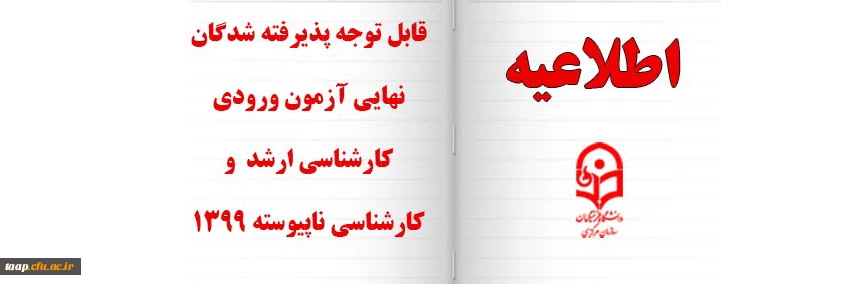 اطلاعیه
دانشگاه فرهنگیان
سازمان مرکزی
قابل توجه پذیرفته شدگان
نهایی آزمون ورودی
کارشناسی ارشد و
کارشناسی ناپیوسته ۱۳۹۹
taap.cfu.ac.ir